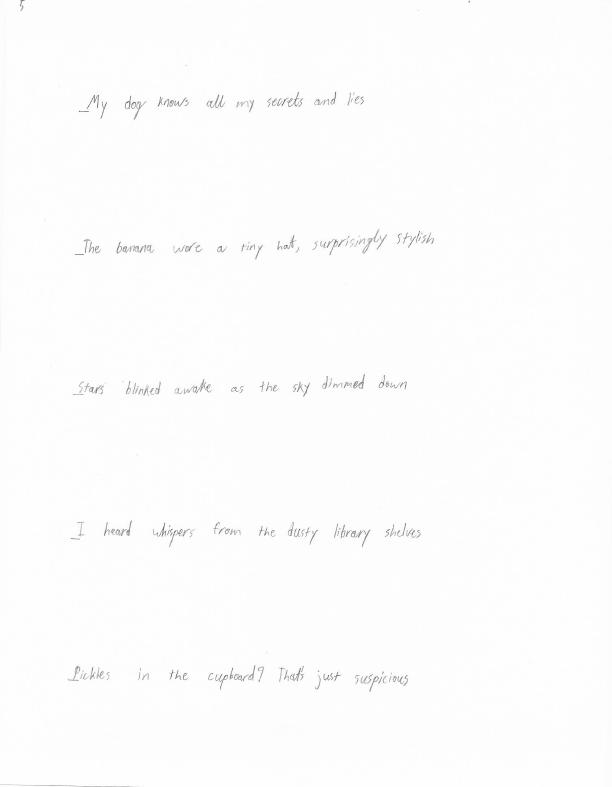 5
My dog knows all my secrets and lies
The banana wore a tiny hat, surprisingly stylish
Stars blinked awake as the sky dimmed down
I heard whispers from the dusty library shelves
Pickles in the cupboard? That's just suspicious